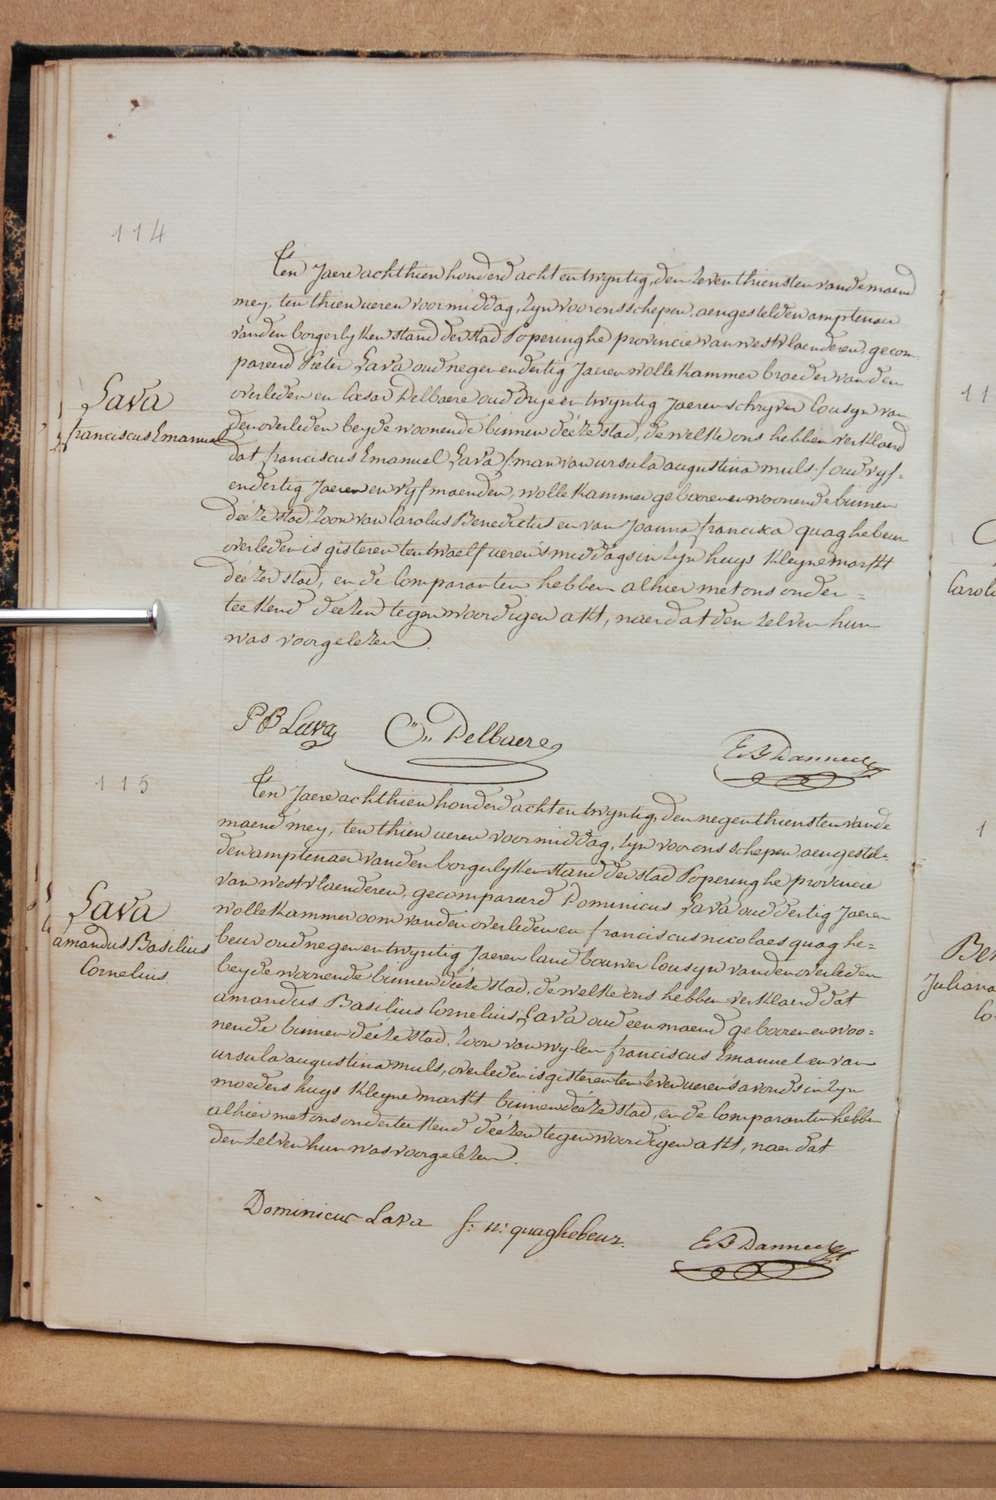 114
Ten Jaere achthien honderd acht en twyntig, den zeventhiensten van de maend
mey, ten thien ueren voormiddag, zyn voor ons schepen, aengestelden amptenaer
van den borgerlyken stand der stad Poperinghe provincie van westvlaenderen, gecom-
pareerd Pieter Lava oud negen en dertig Jaeren wollekammer broeder van den
overleden en Cæsar Delbaere oud drye en twyntig Jaeren schryver Cousyn van
Lava
franciscus Emanuel
den overleden beyde woonende binnen deéze stad, de welke ons hebben verklaerd
dat franciscus Emanuel Lava /man van ursula augustina muls./ oud vyf-
endertig Jaeren en vyf maenden, wollekammer gebooren en woonende binnen
deéze stad, zoon van Carolus Benedictus en van Joanna francisca quaghebeur
overleden is gisteren ten twaelf ueren 's middags in zyn huys kleyne markt
deézer stad, en de Comparanten hebben alhier met ons onder-
teekend deézen tegenwoordigen akt, naer dat den zelven hun
was voorgelezen.
P B Lava C.. Delbaere
E B Dannee
115
Ten Jaere achthien honderd acht en twyntig, den negenthiensten van de
maend mey, ten thien ueren voormiddag, zyn voor ons schepen, aengestel-
den amptenaer van den borgerlyken stand der stad Poperinghe provincie
van westvlaenderen, gecompareerd Dominicus Lava oud dertig Jaeren
Lava
amandus Basilius
Cornelius
wollekammer oom van den overleden en franciscus nicolaes quaghe-
beur oud negen en twyntig Jaeren landbouwer Cousyn van den overleden
beyde woonende binnen deéze stad, de welke ons hebben verklaerd dat
amandus Basilius Cornelius Lava oud een maend gebooren en woo-
nende binnen deéze stad, zoon van wylen franciscus Emanuel en van
ursula augustina muls, overleden is gisteren ten zeven ueren 's avonds in zyn
moeders huys kleyne markt binnen deéze stad, en de Comparanten hebben
alhier met ons onderteekend deézen tegenwoordigen akt, naer dat
den zelven hun was voorgelezen.
Dominicus Lava f: n: quaghebeur.
E B Dannee
11
Carol
1
Ber
Juliana
Co